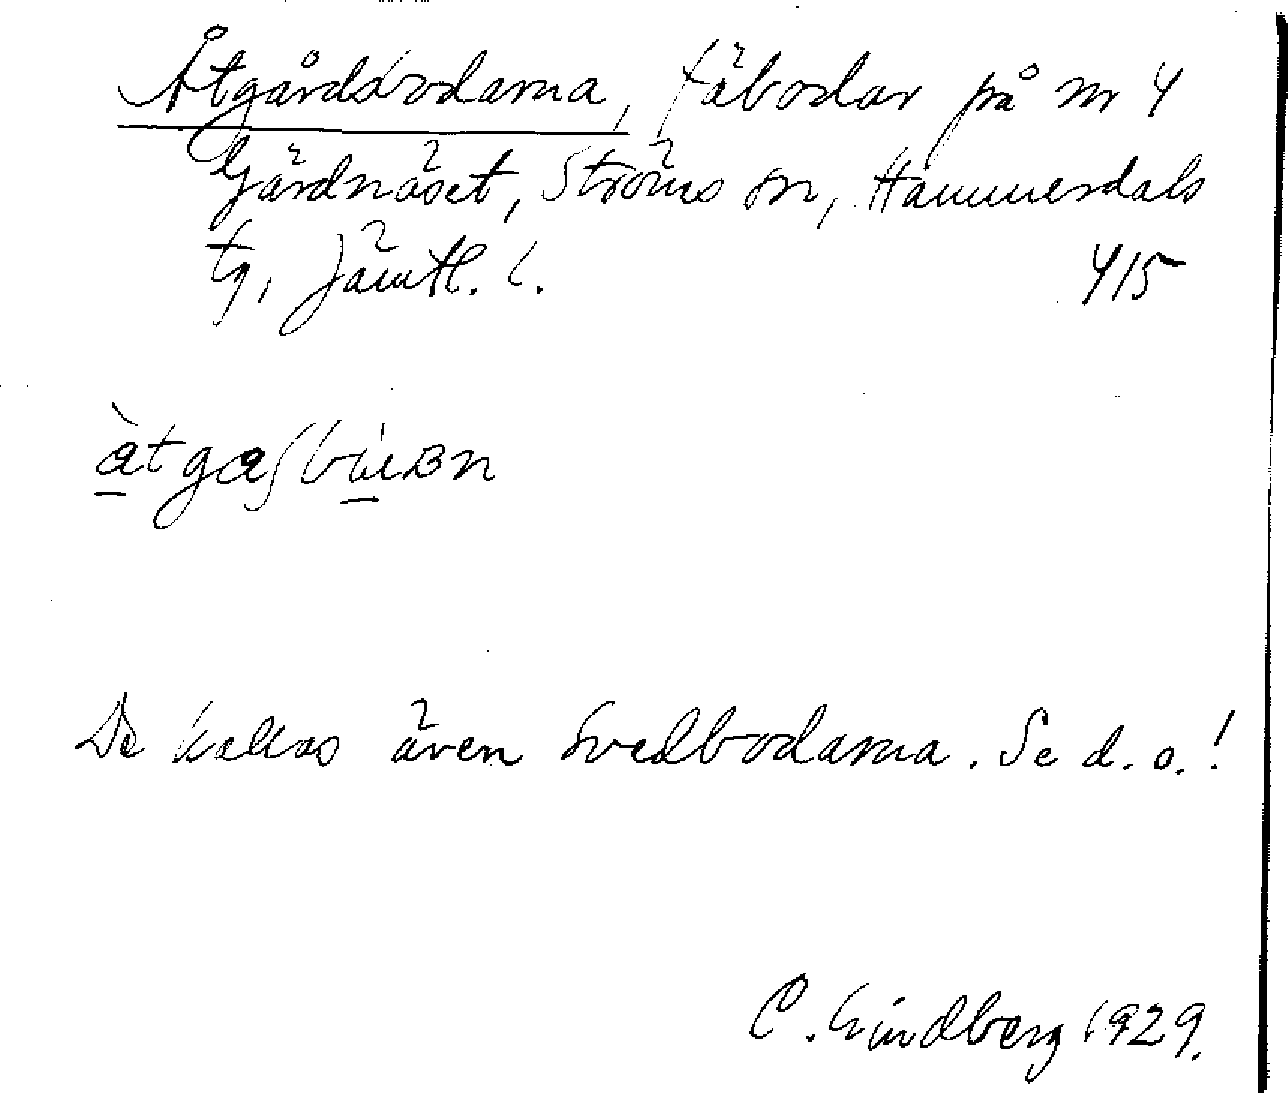 Åtgårdsbodarna, fäbodar på nr 4
Gärdnäset, Ströms sn, Hammerdals
tg, Jämtl. l.
4/5
àtgaʃbùɪʙn
De kallas även Svedbodarna. Se d. o.!
C. Lindberg 1929.